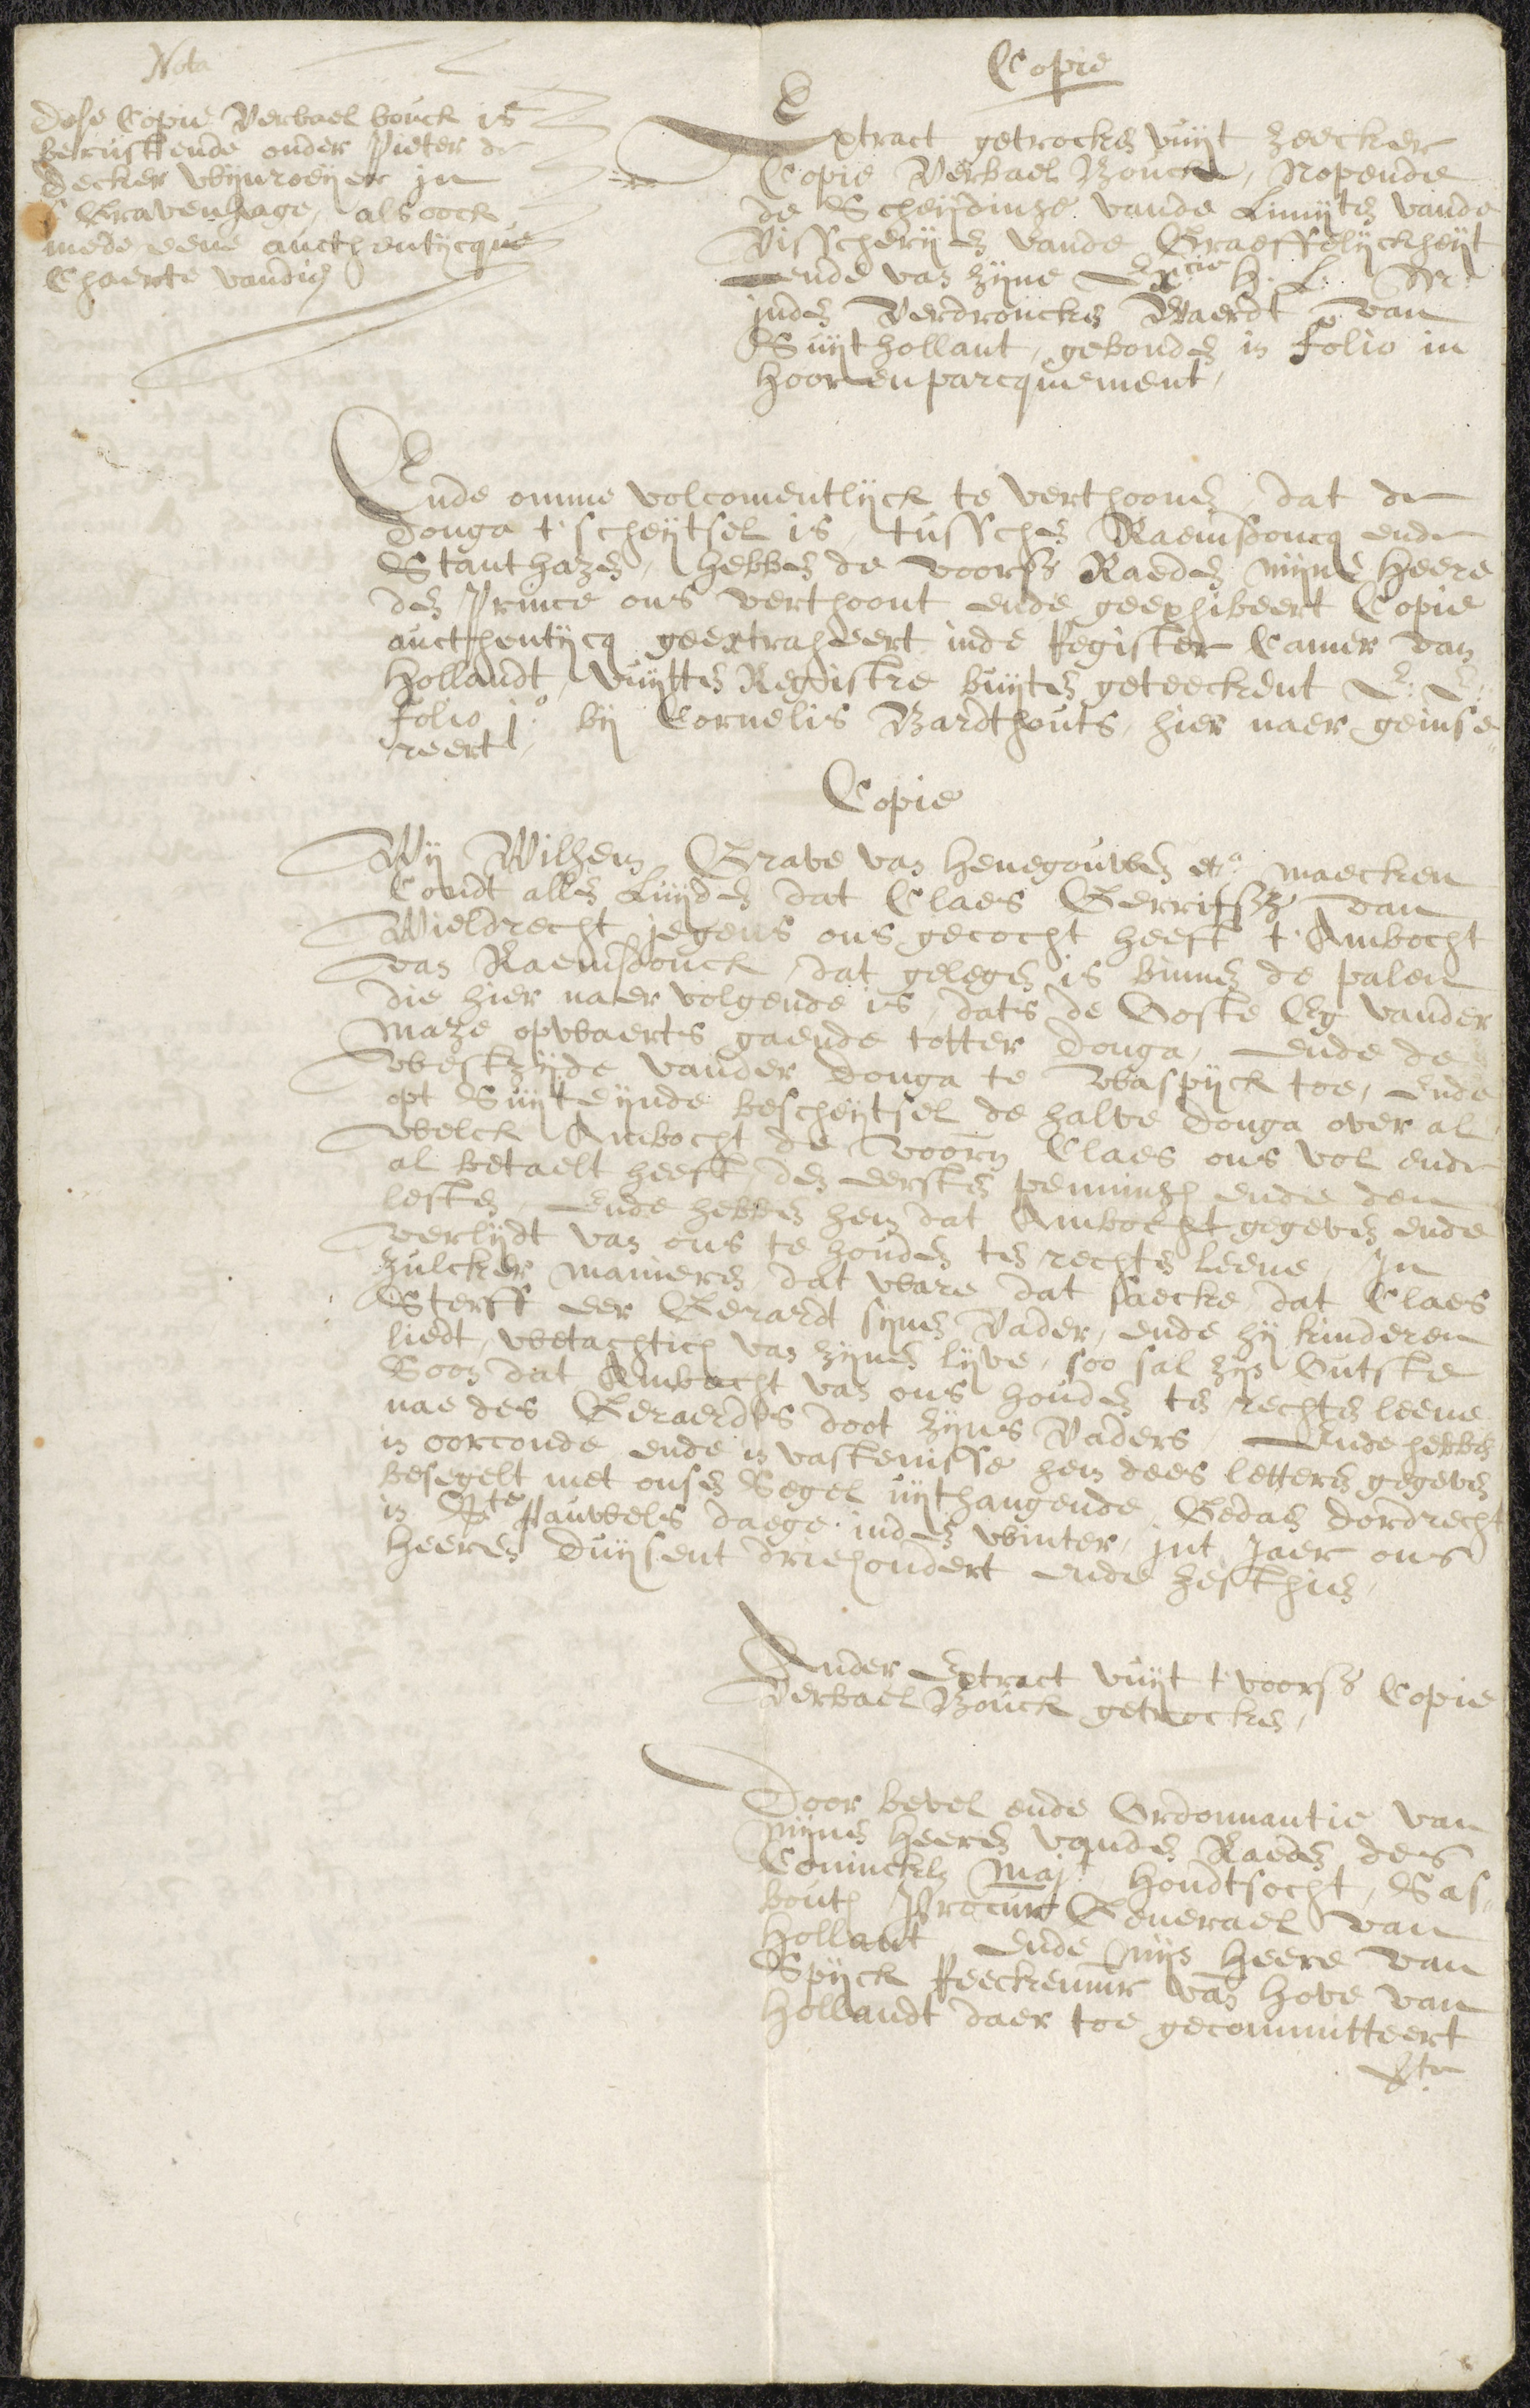 Nota
dese Copie Verbael bouck is
berustende onder Pieter de
Decker wijnroeijer in
s' Gravenhage, als oock
mede eene aucthentijcque
Chaerte vandien
Copie
Extract getrocken vuijt zeecker
Copie Verbael Bouck, Nopende
de Scheijdinge vande Limijten vande
Visscherijen vande Graeffelijckheijt
ende van zijne Ex.cie H. L.
inden Verdroncken Waerdt van
Suijthollant, gebonden in folio in
hooren parcquement,
Ende omme volcomentlijck te verthoonen, dat de
Donga t'scheijtsel is, tusschen Raemsdoncq ende
Stanthazen, hebben de voors Raeden mijns heere
den Prince ons verthoont ende geexhibeert Copie
aucthentijcq geextraheert inde Register Camer van
Hollandt, vuijtten Registre buijten geteeckent E. E.
folio j.o bij Cornelis Bardthouts, hier naer geinse-
reert,
Copie
Wij Wilhem Grave van Henegouwen etc.a maecken
Condt allen Luijden dat Claes Gerritssz van
Wieldrecht jegens ons gecocht heeft t'Ambocht
van Raemsdonck, dat gelegen is binnen de palen
die hier naer volgende is, dats de Ooste Eg vander
Maze opwaerts gaende totter Donga, ende de
westzijde vander Donga te Waspijck toe, ende
opt Suijteijnde bescheijtsel de halve Donga over al
welck Ambocht de voorn Claes ons vol ende
al betaelt heeft, den eersten penningh ende den
lesten, Ende hebben hem dat Ambocht gegeven ende
verlijdt van ons te houden ten rechten leene, In
zulcker manieren, dat ware dat saecke dat Claes
Sterff eer Gerardt sijnen Vader, ende hij kinderen
liedt, wetachtich van zijnen lijve, soo sal zijn Outste
Soon dat Ambacht van ons houden ten rechten leene
nae des Geraerdts doot zijns Vaders, Ende hebben
in oorconde ende in vastenisse hem dees letteren gegeven
besegelt met onsen Segel uijthangende, Gedaen Dordrecht
in S.te Pauwels daege inden winter, int Jaer ons
Heeren Duijsent driehondert ende zesthien,
Ander Extract vuijt t'voors Copie
Verbael Bouck getrocken,
Door bevel ende Ordonnantie van
mijnen Heeren vanden Raeden des
Conincklr Maj.t Hondtsocht, Sas-
bouth Procur Generael van
Hollant, ende mijn Heere van
Spijck Reeckenmr van Hove van
Hollandt daer toe gecommitteert